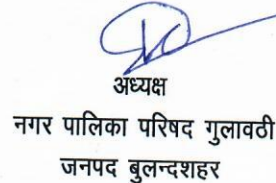 अध्यक्ष
नगर पालिका परिषद गुलावठी
जनपद बुलन्दशहर